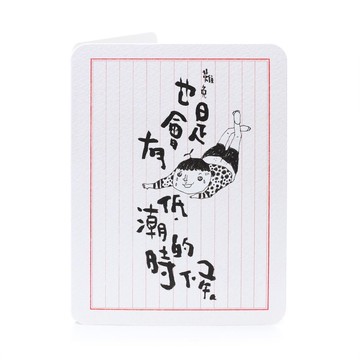 難免
是
也會有
低潮
的時候